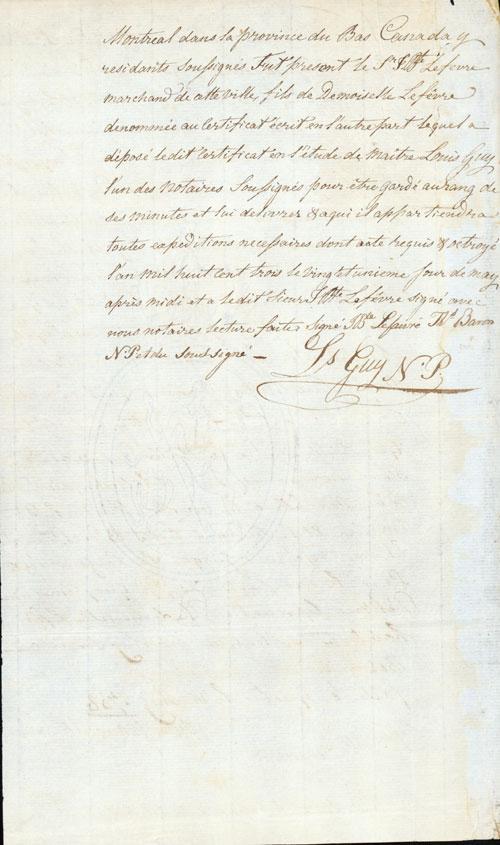 Montreal dans la province du Bas Canada y
residants Soussignés Fut present le Sr. Lefevre
marchand de cette ville, fils de Demoiselle Lefèvre
denommée au Certificat écrit en l'autre part lequel a
déposé ledit Certificat en l'étude de maître Louis Guy
l'un des notaires Soussignés pour être gardé au rang de
ses minutes et lui delivrer & a qui il appartiendra
toutes expeditions necessaires dont acte requis & octroyé
l'an mil huit cent trois le vingt et unieme Jour de may
après midi et a le dit Sieur Lefèvre signé avec
nous notaires lecture faite, signé Lefaivré Baron
N.P. et du Soussigné —
Ls Guy N.P.